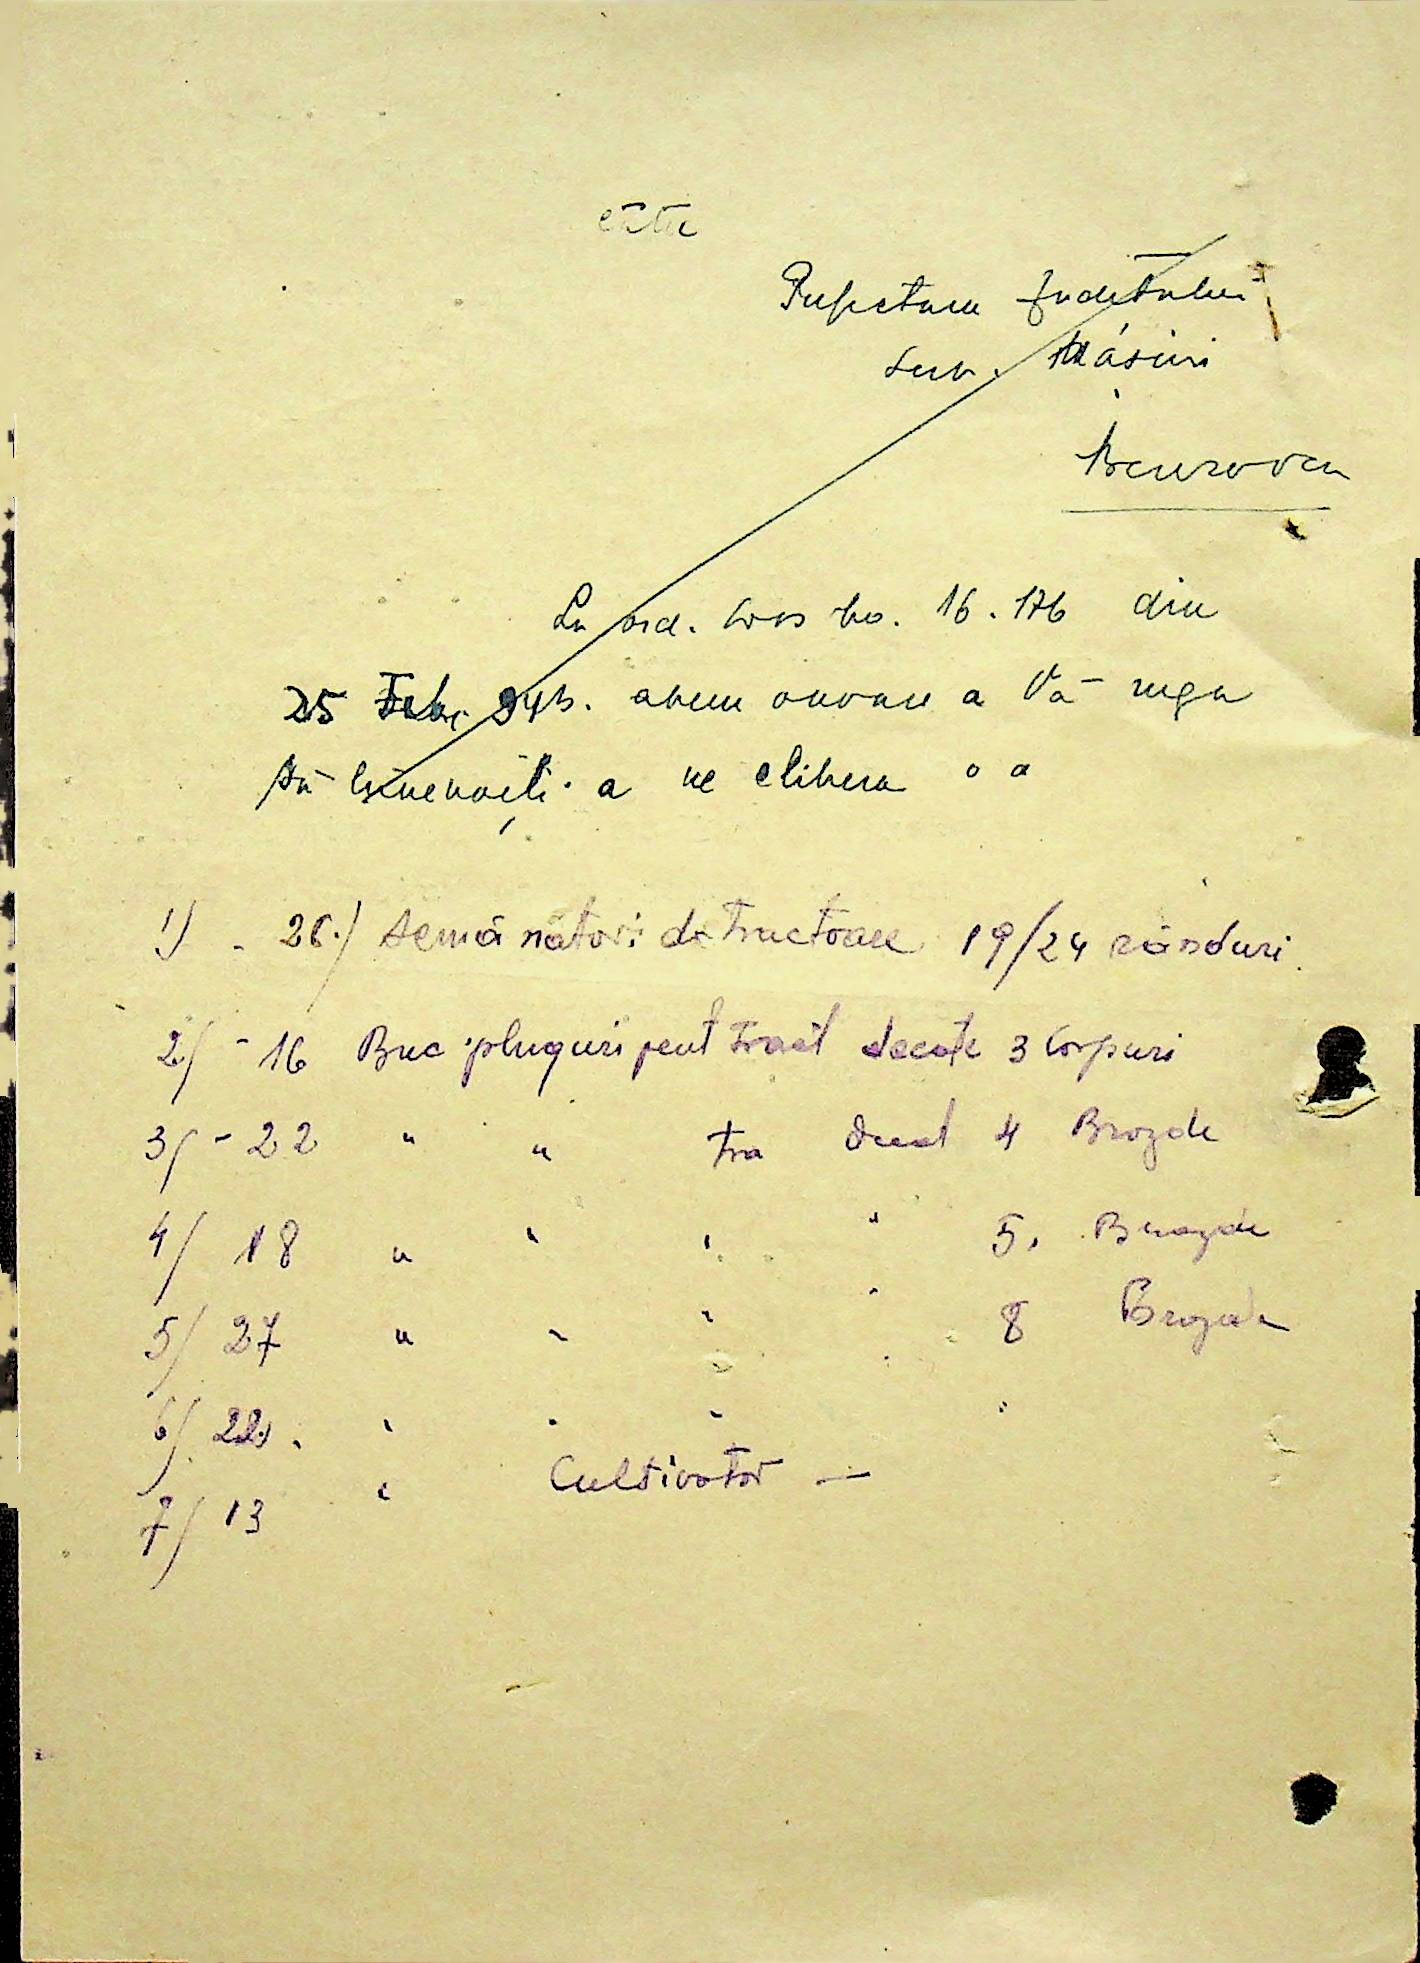 către
Prefectura Județului
Serv. Măsuri
La ord. Dvs No. 16.176 din
25 Feb. 945. avem onoare a Vă ruga
să binevoiți a ne elibera
1) - 26.) Semănători de tractoare 19/24 rânduri.
2/ - 16 Buc pluguri pent tract decate 3 Corpuri
3/ - 22 " " tra decat 4 Brozde
4/ 18 " " " " 5. Brazde
5/ 27 " " " " 8 Brozde
6/ 22. " " " "
7/ 13 " Cultivator —